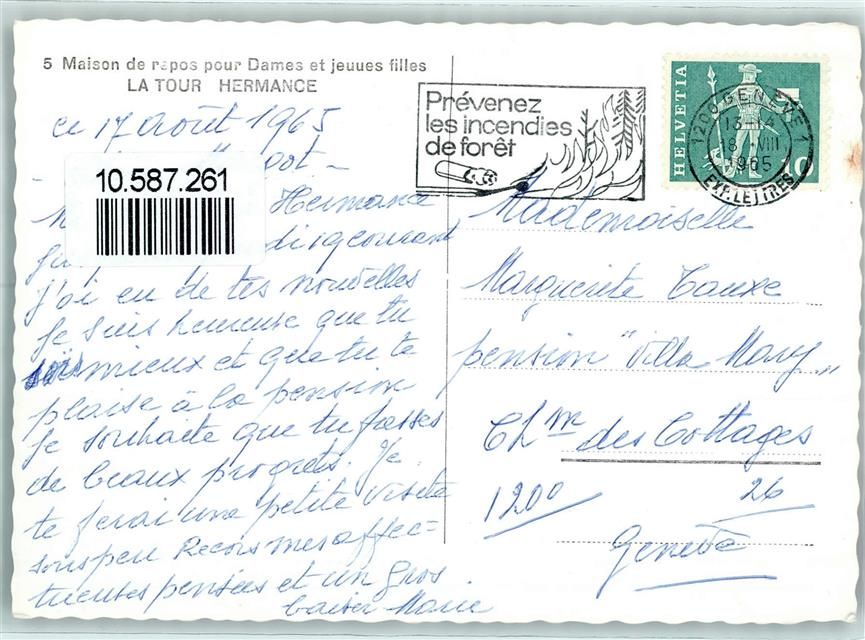 5 Maison de repos pour Dames et jeuues filles
LA TOUR HERMANCE
ce 17 Août 1965
10.587.261
Hermance
j'ai eu de tes nouvelles
Je suis heureuse que tu
mieux et que tu te
plaise à la pension
je souhaite que tu fasses
de beaux progrets. Je
te ferai une petite visite
sous peu Recois mes affec=
tueuses pensées et un gros
baiser Marie
Prévenez
les incendies
de forêt
HELVETIA
1200 GENÈVE 1
1965
EXP. LETTRES
Mademoiselle
Marguerite Tauxe
pension "Villa Mary"
Ch.m des Cottages
1200 26
Genève